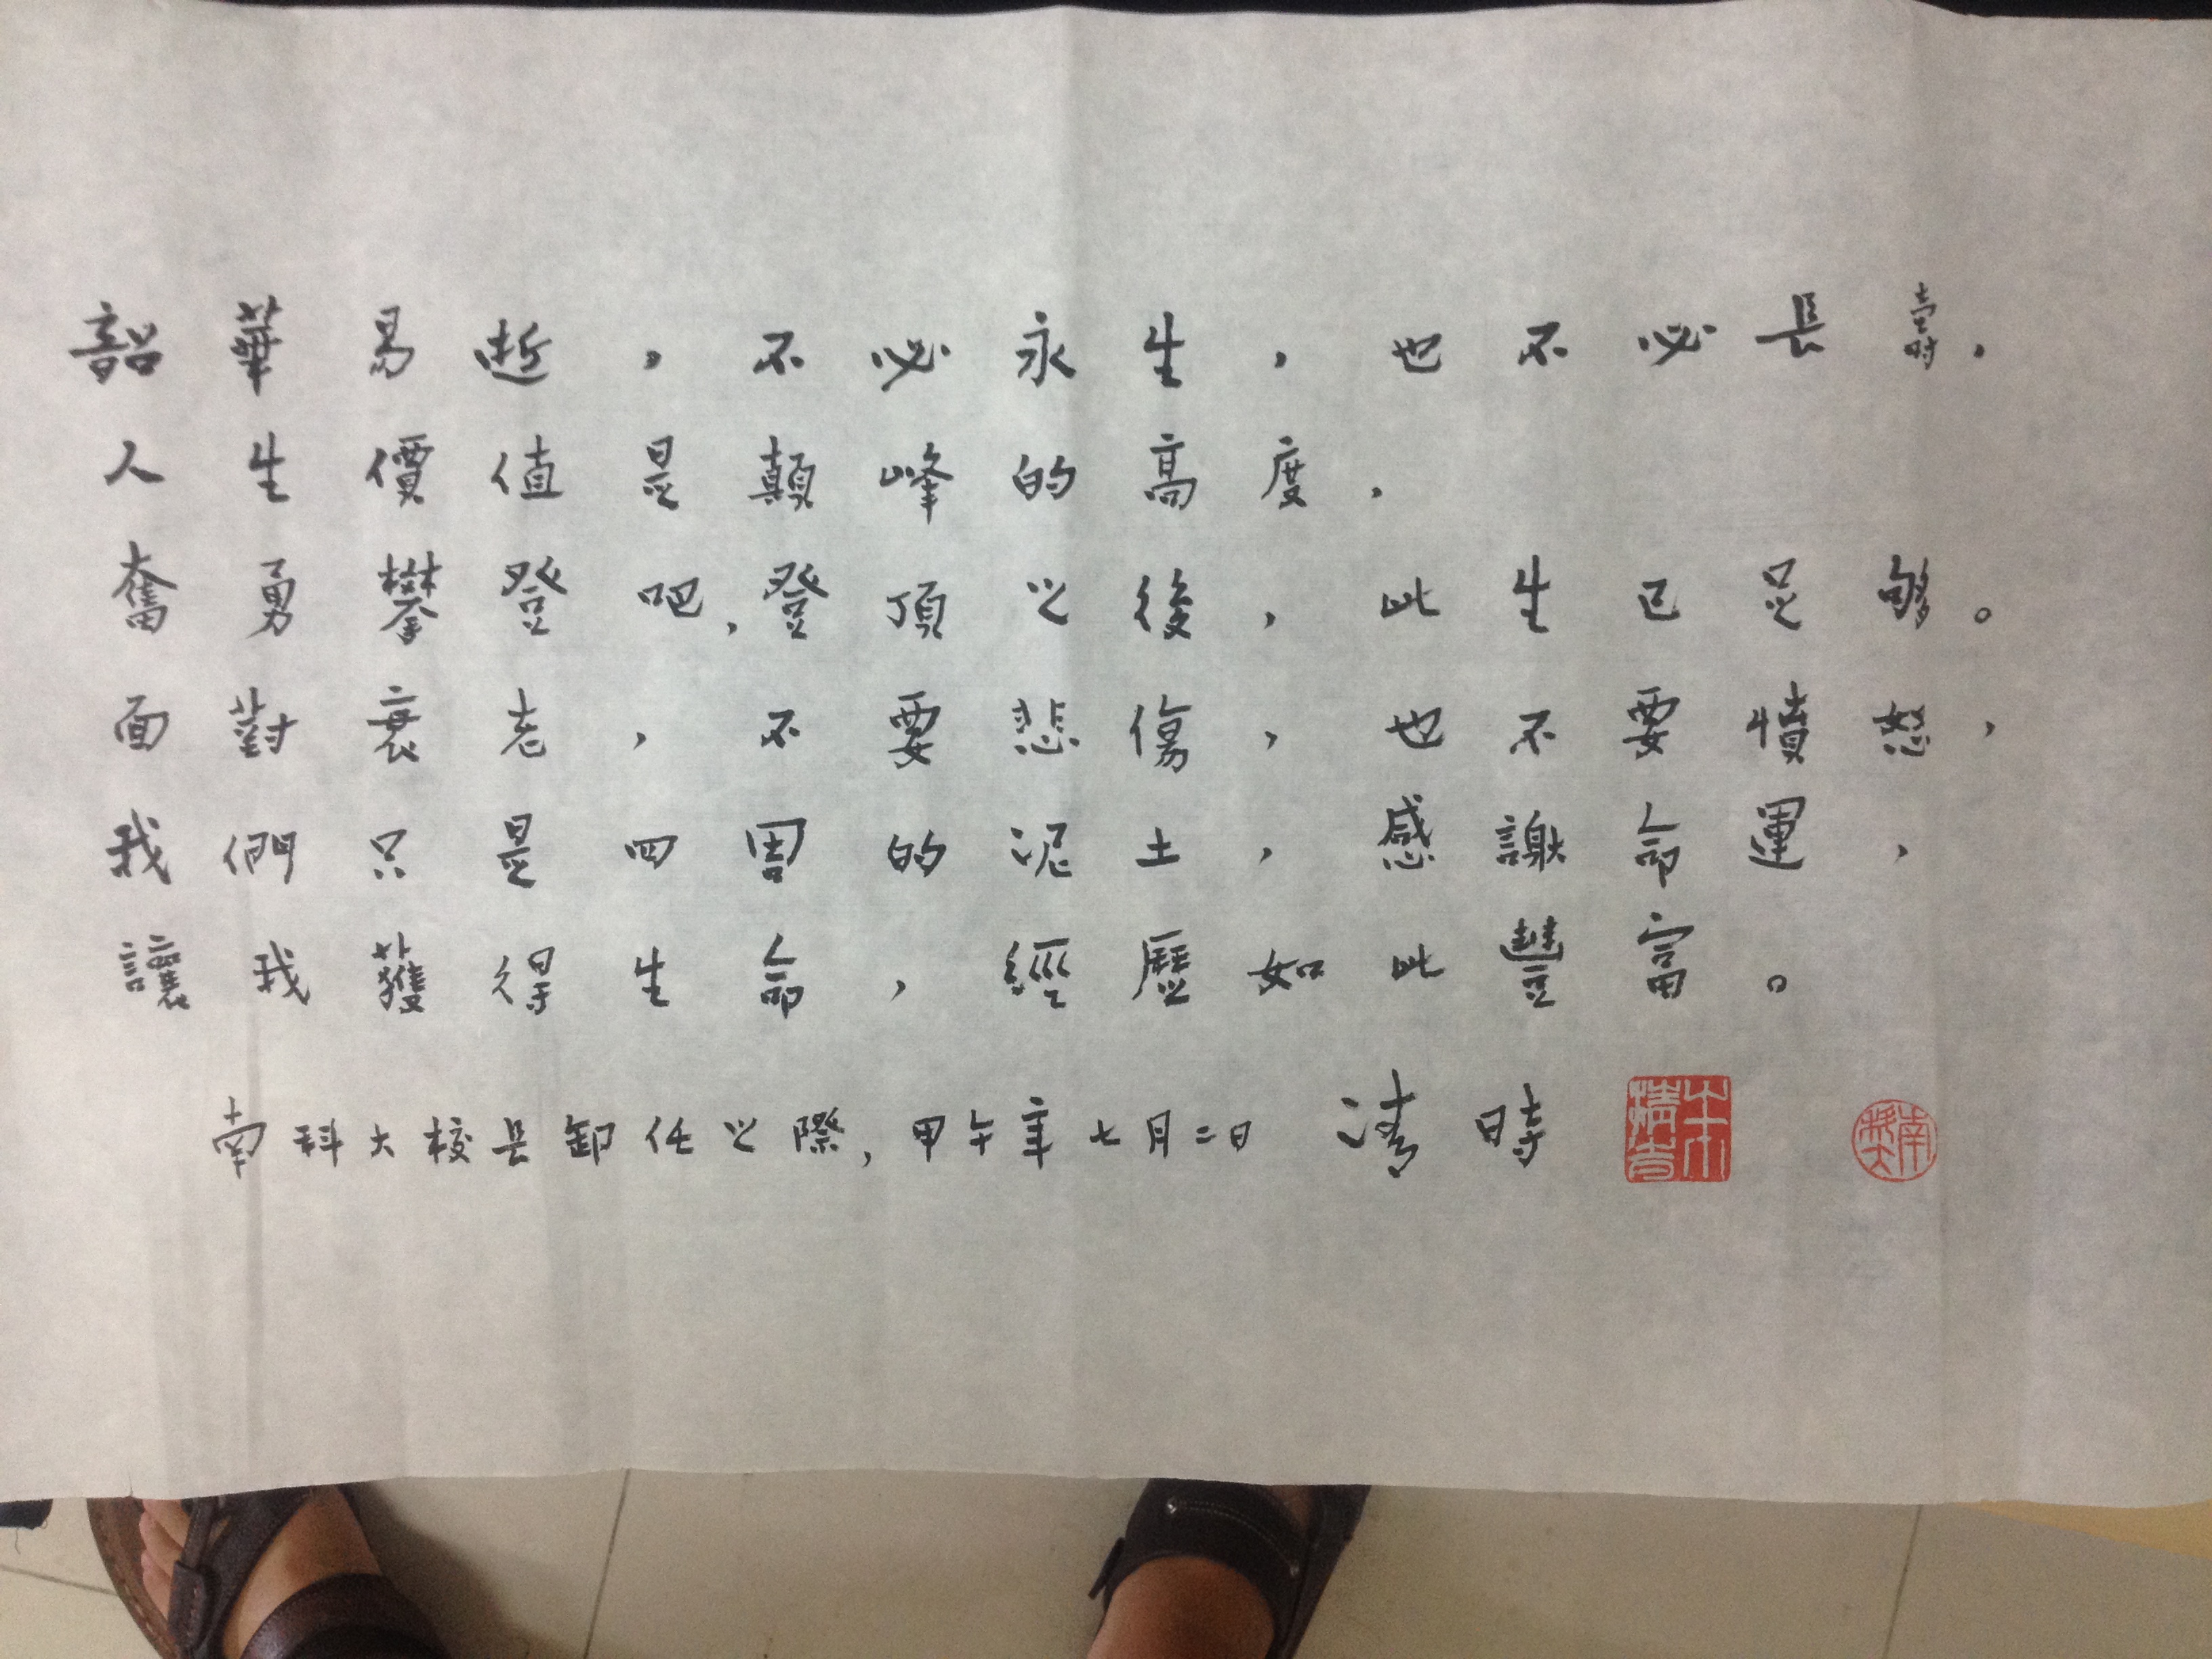 韶華易逝，不必永生，也不必長壽，
人生價值是顛峰的高度，
奮勇攀登吧，登頂之後，此生已足够。
面對衰老，不要悲傷，也不要憤怒，
我們只是四周的泥土，感謝命運，
讓我獲得生命，經歷如此豐富。
南科大校長卸任之際，甲午年七月二日 清時
朱清時
南科大